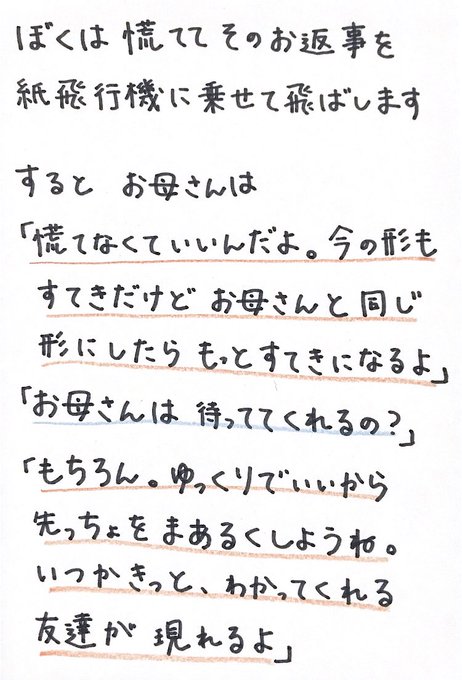 ぼくは 慌てて そのお返事を
紙飛行機に乗せて飛ばします
すると お母さんは
「慌てなくていいんだよ。今の形も
すてきだけど お母さんと 同じ
形にしたら もっとすてきになるよ」
「お母さんは 待っててくれるの?」
「もちろん。ゆっくりでいいから
先っちょを まあるくしようね。
いつかきっと、わかってくれる
友達が 現れるよ」